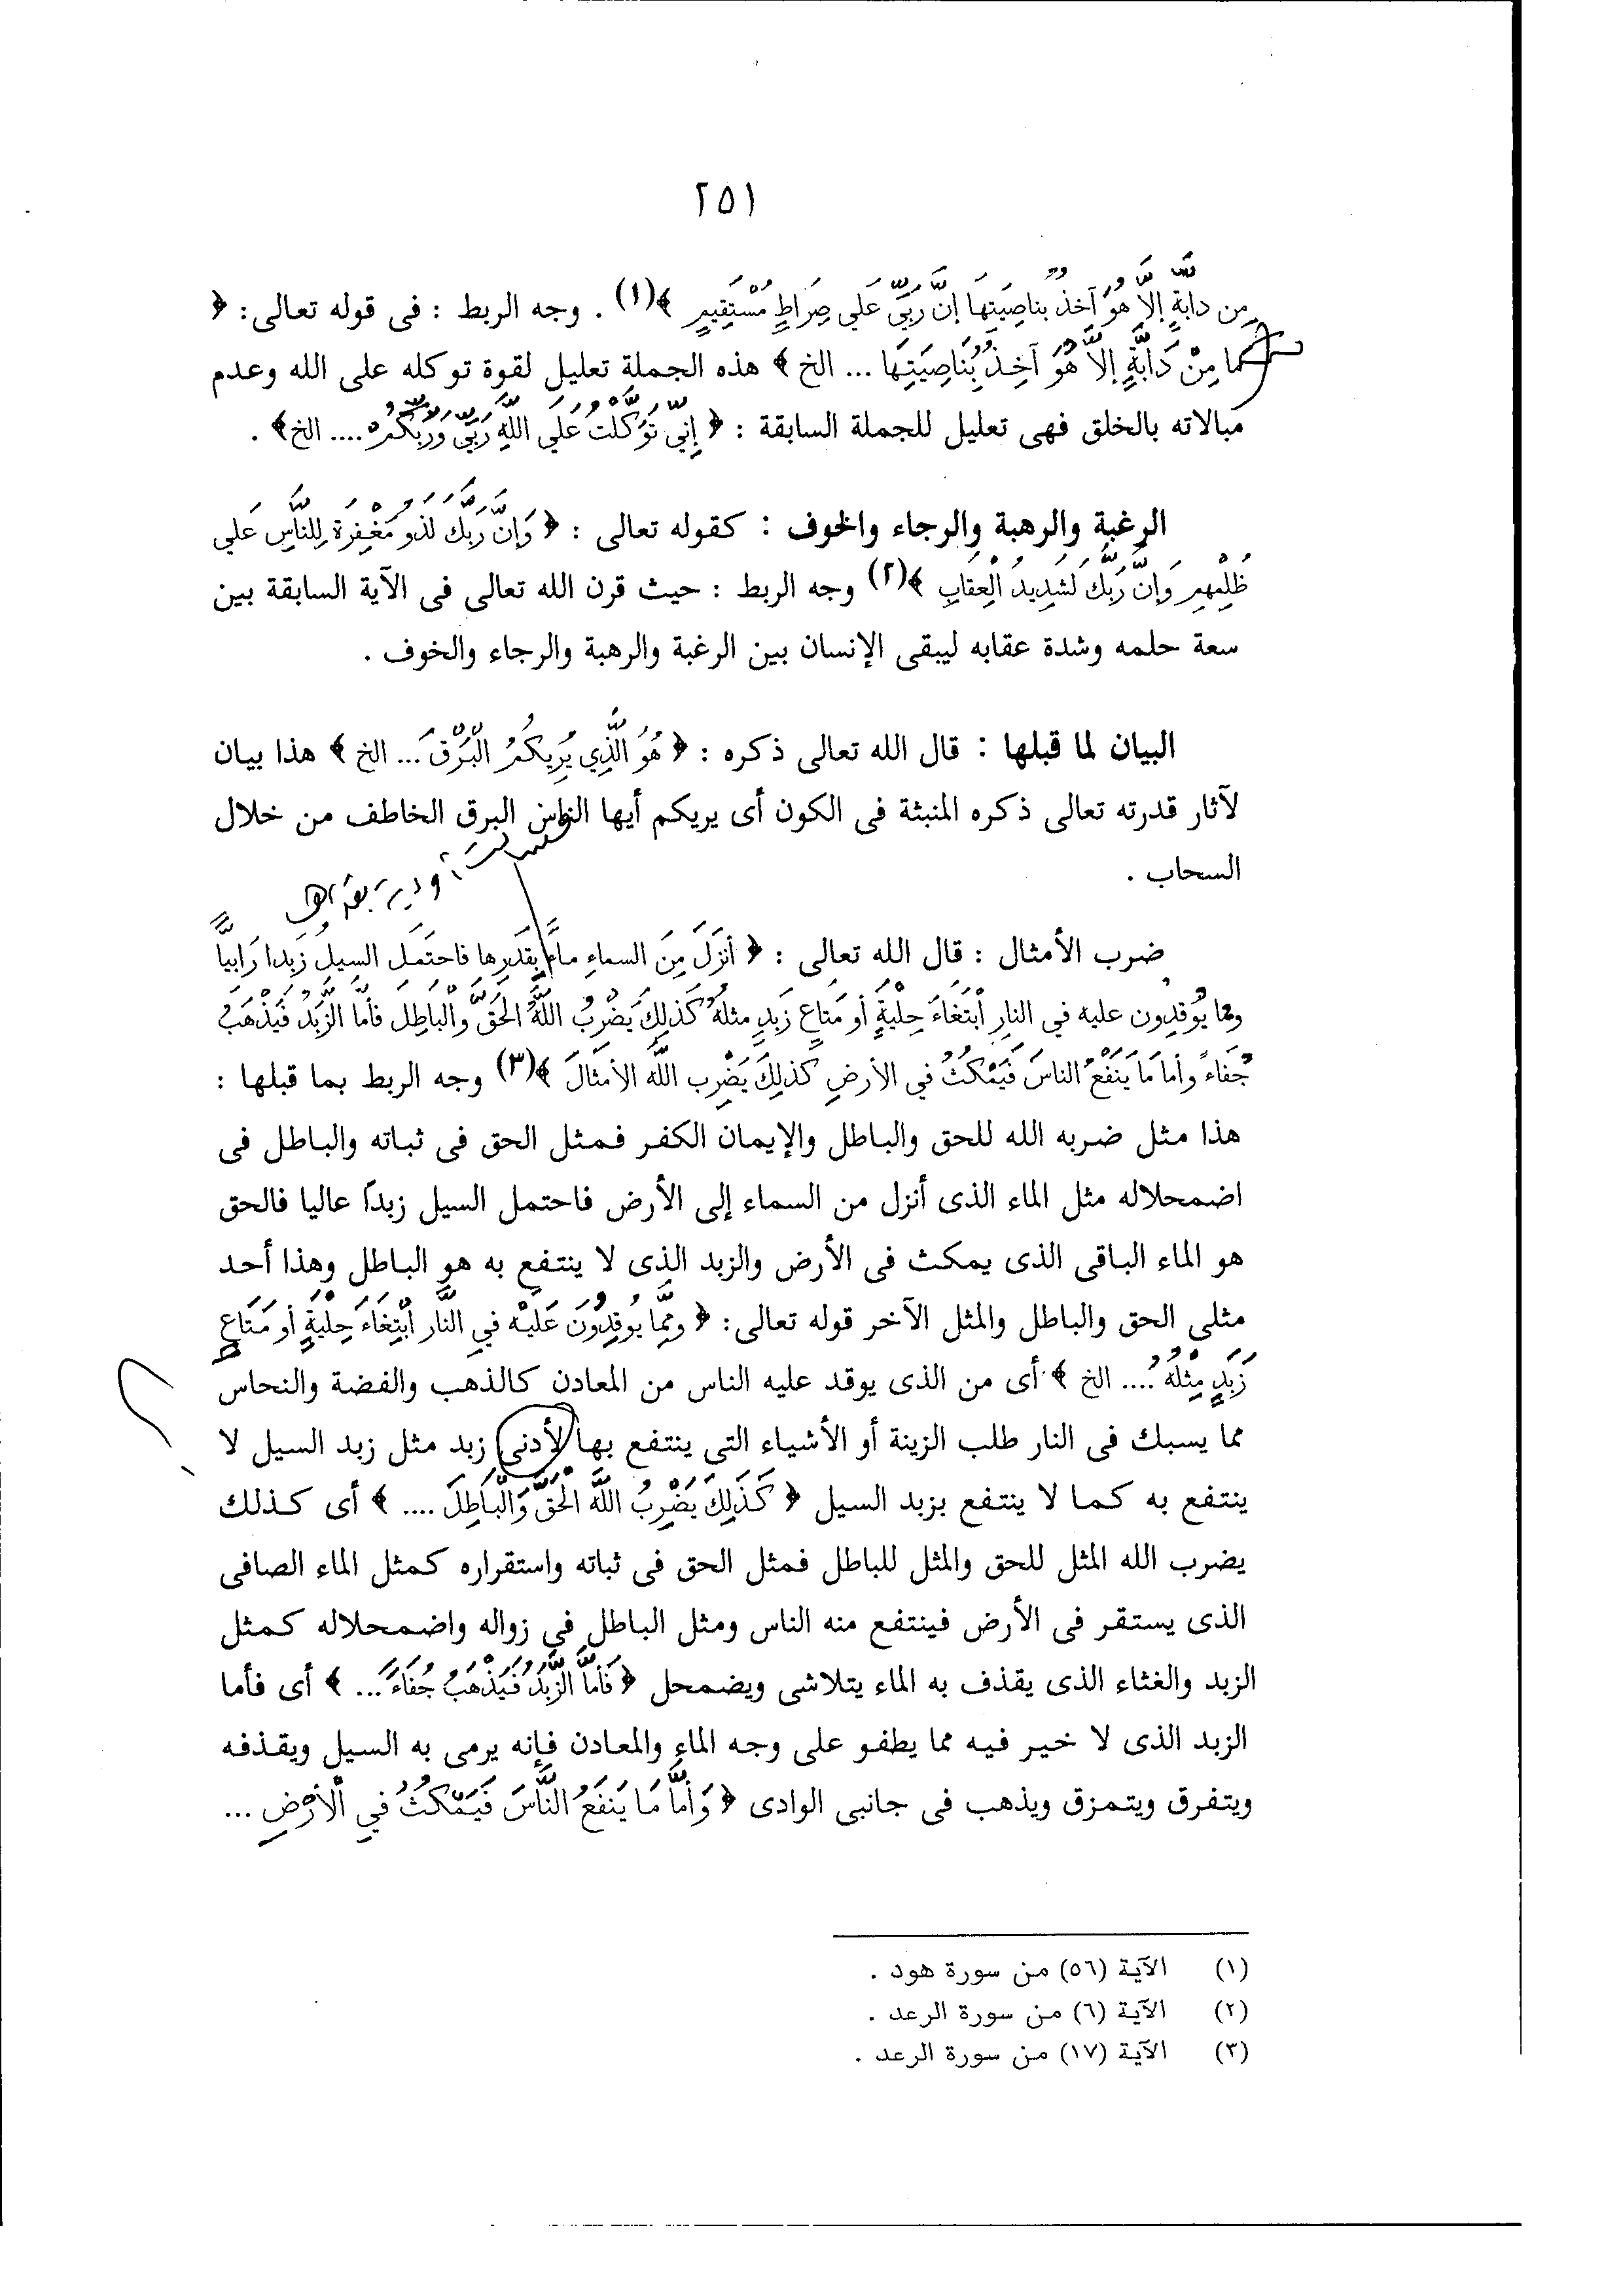 ٢٥١
مِن دابةٍ إلاَّ هُوَ آخذٌ بناصِيَتِهَا إنَّ رَبِّي عَلَى صِرَاطٍ مُسْتَقِيمٍ ﴾(١) . وجه الربط : فى قوله تعالى: ﴿
ما مِنْ دَابَّةٍ إلاَّ هُوَ آخِذٌ بِنَاصِيَتِهَا ... الخ ﴾ هذه الجملة تعليل لقوة توكله على الله وعدم
مبالاته بالخلق فهى تعليل للجملة السابقة : ﴿ إِنِّي تَوَكَّلْتُ عَلَى اللَّهِ رَبِّي وَرَبِّكُمْ .... الخ﴾ .
الرغبة والرهبة والرجاء والخوف : كقوله تعالى : ﴿ وَإِنَّ رَبَّكَ لَذُو مَغْفِرَةٍ لِلنَّاسِ عَلَى
ظُلْمِهِمْ وَإِنَّ رَبَّكَ لَشَدِيدُ الْعِقَابِ ﴾(٢) وجه الربط : حيث قرن الله تعالى فى الآية السابقة بين
سعة حلمه وشدة عقابه ليبقى الإنسان بين الرغبة والرهبة والرجاء والخوف .
البيان لما قبلها : قال الله تعالى ذكره : ﴿ هُوَ الَّذِي يُرِيكُمُ الْبَرْقَ ... الخ ﴾ هذا بيان
لآثار قدرته تعالى ذكره المنبثة فى الكون أى يريكم أيها الناس البرق الخاطف من خلال
السحاب .
فسالت أودية بقدرها
ضرب الأمثال : قال الله تعالى : ﴿ أنزَلَ مِنَ السماءِ ماءً بِقَدَرِها فاحتَمَلَ السيلُ زبَدا رَابياً
ومما يُوقدِون عليه في النارِ ابْتغَاءَ حِلْيَةٍ أو مَتاعٍ زَبَدٍ مثلُهُ كَذلِكَ يَضْرِبُ اللَّهُ الحَقَّ والْبَاطِلَ فأمَّا الزَّبَدُ فَيَذْهَبُ
جُفَاءً وأما مَا يَنفَعُ الناسَ فَيَمْكُثُ في الأرضِ كَذلِكَ يَضْرِب اللَّهُ الأمثالَ ﴾(٣) وجه الربط بما قبلها :
هذا مثل ضربه الله للحق والباطل والإيمان الكفر فمثل الحق فى ثباته والباطل فى
اضمحلاله مثل الماء الذى أنزل من السماء إلى الأرض فاحتمل السيل زبداً عاليا فالحق
هو الماء الباقى الذى يمكث فى الأرض والزبد الذى لا ينتفع به هو الباطل وهذا أحد
مثلى الحق والباطل والمثل الآخر قوله تعالى: ﴿ ومِمَّا يُوقِدُونَ عَلَيْهِ فِي النَّارِ ابْتِغَاءَ حِلْيَةٍ أو مَتَاعٍ
زَبَدٍ مِثْلُهُ .... الخ ﴾ أى من الذى يوقد عليه الناس من المعادن كالذهب والفضة والنحاس
مما يسبك فى النار طلب الزينة أو الأشياء التى ينتفع بها لأدنى زبد مثل زبد السيل لا
ينتفع به كما لا ينتفع بزبد السيل ﴿ كَذَلِكَ يَضْرِبُ اللَّهُ الْحَقَّ وَالْبَاطِلَ .... ﴾ أى كذلك
يضرب الله المثل للحق والمثل للباطل فمثل الحق فى ثباته واستقراره كمثل الماء الصافى
الذى يستقر فى الأرض فينتفع منه الناس ومثل الباطل فى زواله واضمحلاله كمثل
الزبد والغثاء الذى يقذف به الماء يتلاشى ويضمحل ﴿ فَأَمَّا الزَّبَدُ فَيَذْهَبُ جُفَاءً ... ﴾ أى فأما
الزبد الذى لا خير فيه مما يطفو على وجه الماء والمعادن فإنه يرمى به السيل ويقذفه
ويتفرق ويتمزق ويذهب فى جانبى الوادى ﴿ وَأَمَّا مَا يَنفَعُ النَّاسَ فَيَمْكُثُ فِي الْأَرْضِ ...
(١) الآية (٥٦) من سورة هود .
(٢) الآية (٦) من سورة الرعد .
(٣) الآية (١٧) من سورة الرعد .